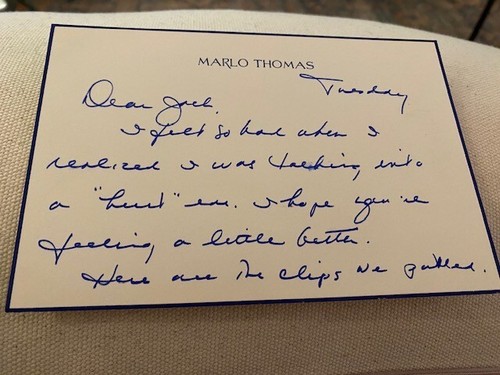 MARLO THOMAS
Tuesday
Dear Jack,
I felt so bad when I
realized I was talking into
a "hurt" ear. I hope you're
feeling a little better.
Here are the clips we pulled.